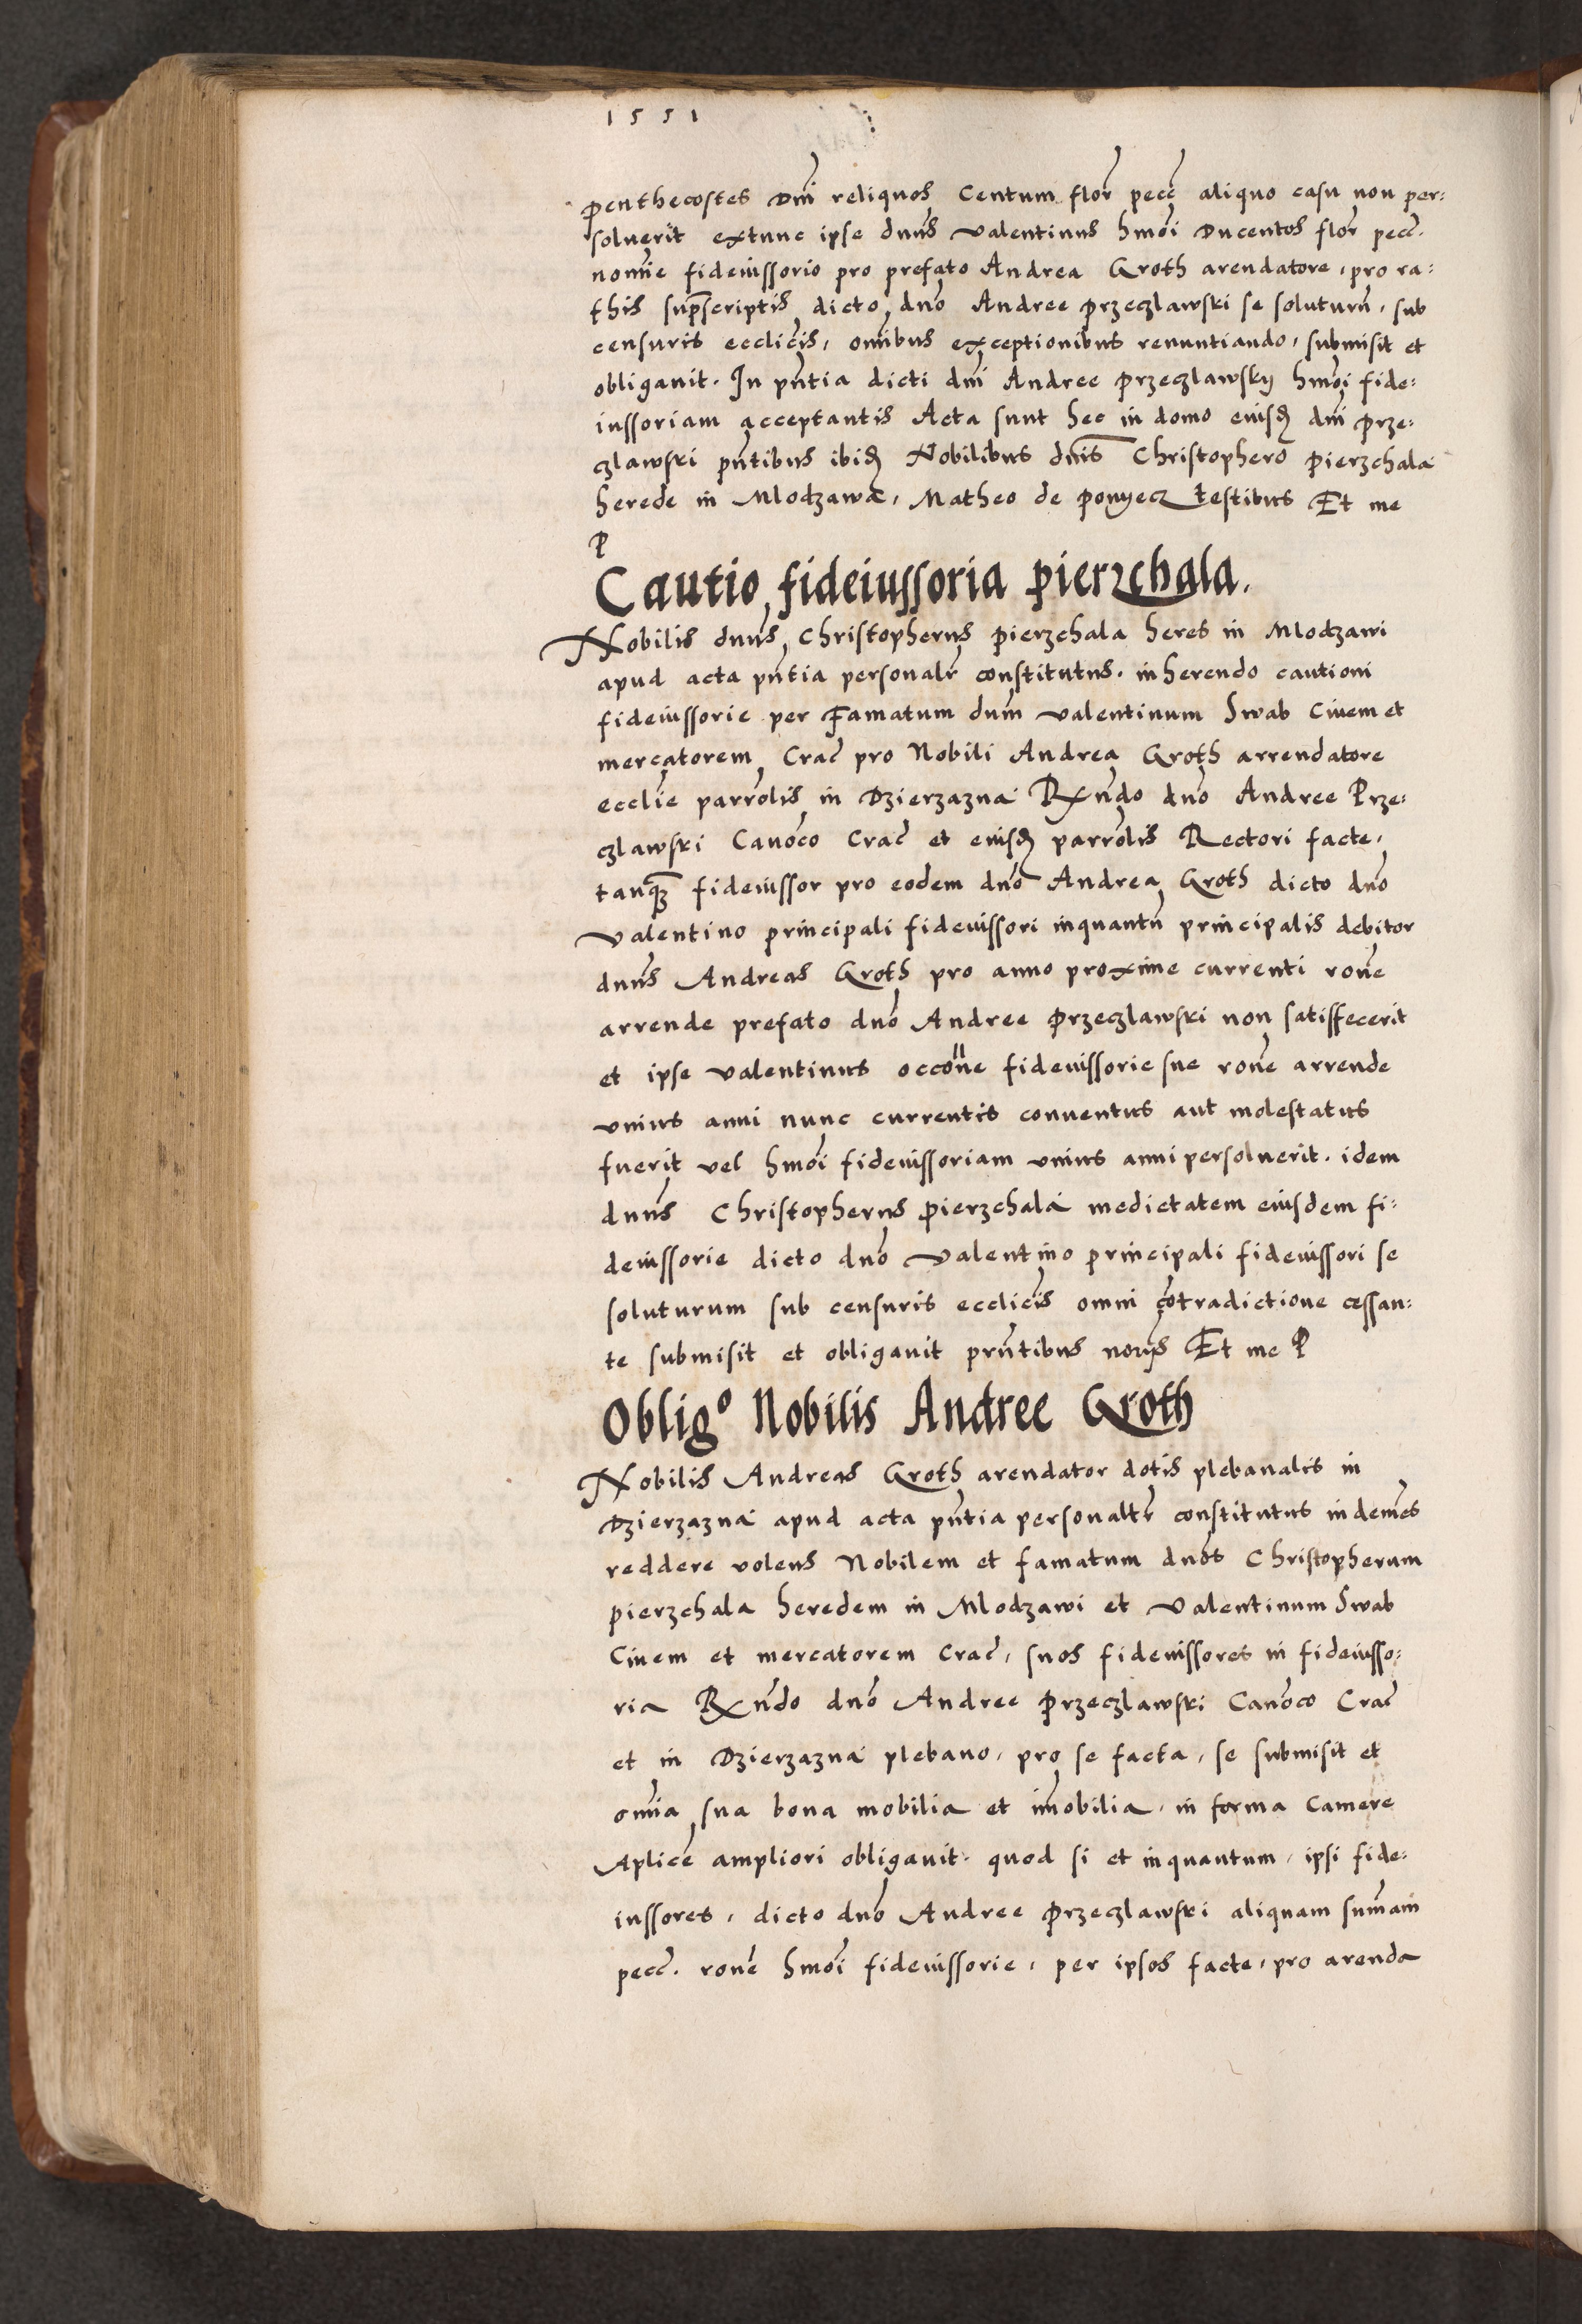 1551
Penthecostes Dni reliquos Centum flor pecc aliquo casu non per:
soluerit extunc ipse dnus Valentinus hmoi Ducentos flor pecc.
nomine fideiussorio pro prefato Andrea Groth arendatore, pro ra:
this suprascriptis dicto dno Andree Przeczlawski se soluturu, sub
censuris ecclicis, omibus exceptionibus renuntiando, submisit et
obligauit. In pntia dicti dni Andree Przeczlawskij hmoi fide:
iussoriam acceptantis Acta sunt hec in domo eiusd dni Prze:
czlawski pntibus ibid Nobilibus dnis Christophero Pierzchala
herede in Modzawa, Matheo de Ponyecz testibus Et me
P
Cautio fideiussoria Pierzchala.
Nobilis dnus Christopherus Pierzchala heres in Modzawi
apud acta pntia personalr constitutus. inherendo cautioni
fideiussorie per Famatum dnm Valentinum Swab Ciuem et
mercatorem Crac pro Nobili Andrea Groth arrendatore
ecclie parrolis in Dzierzazna Rxndo dno Andree Prze:
czlawski Canoco Crac et eiusd parrolis Rectori facte,
tanqz fideiussor pro eodem dno Andrea Groth dicto dno
Valentino principali fideiussori inquantu principalis debitor
dnus Andreas Groth pro anno proxime currenti rone
arrende prefato dno Andree Przeczlawski non satisfecerit
et ipse Valentinus occone fideiussorie sue rone arrende
vnius anni nunc currentis conuentus aut molestatus
fuerit vel hmoi fideiussoriam vnius anni persoluerit. idem
dnus Christopherus Pierzchala medietatem eiusdem fi:
deiussorie dicto dno Valentino principali fideiussori se
soluturum sub censuris ecclicis omni cotradictione cessan:
te submisit et obligauit prntibus Et me P
Oblig° Nobilis Andree Groth
Nobilis Andreas Groth arendator dotis plebanalis in
Dzierzazna apud acta pntia personaltr constitutus indemes
reddere volens Nobilem et famatum dnos Christopherum
Pierzchala heredem in Modzawi et Valentinum Swab
Ciuem et mercatorem Crac, suos fideiussores in fideiusso:
ria Rxndo dno Andree Przeczlawski Canoco Crac
et in Dzierzazna plebano, pro se facta, se submisit et
omia sua bona mobilia et imobilia, in forma Camere
Aplice ampliori obligauit. quod si et inquantum, ipsi fide:
iussores, dicto dno Andree Przeczlawski aliquam sumam
pecc. rone hmoi fideiussorie, per ipsos facte, pro arenda